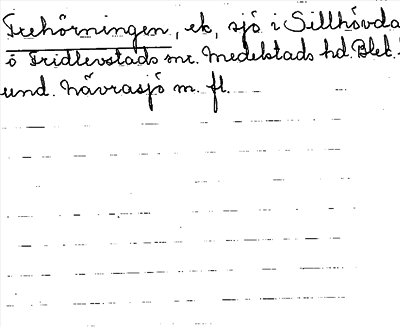 Trehörningen, ek, sjö i Sillhövda
o Fridlevstads snr. Medelstads hd. Blek.
und. Nävrasjö m. fl.